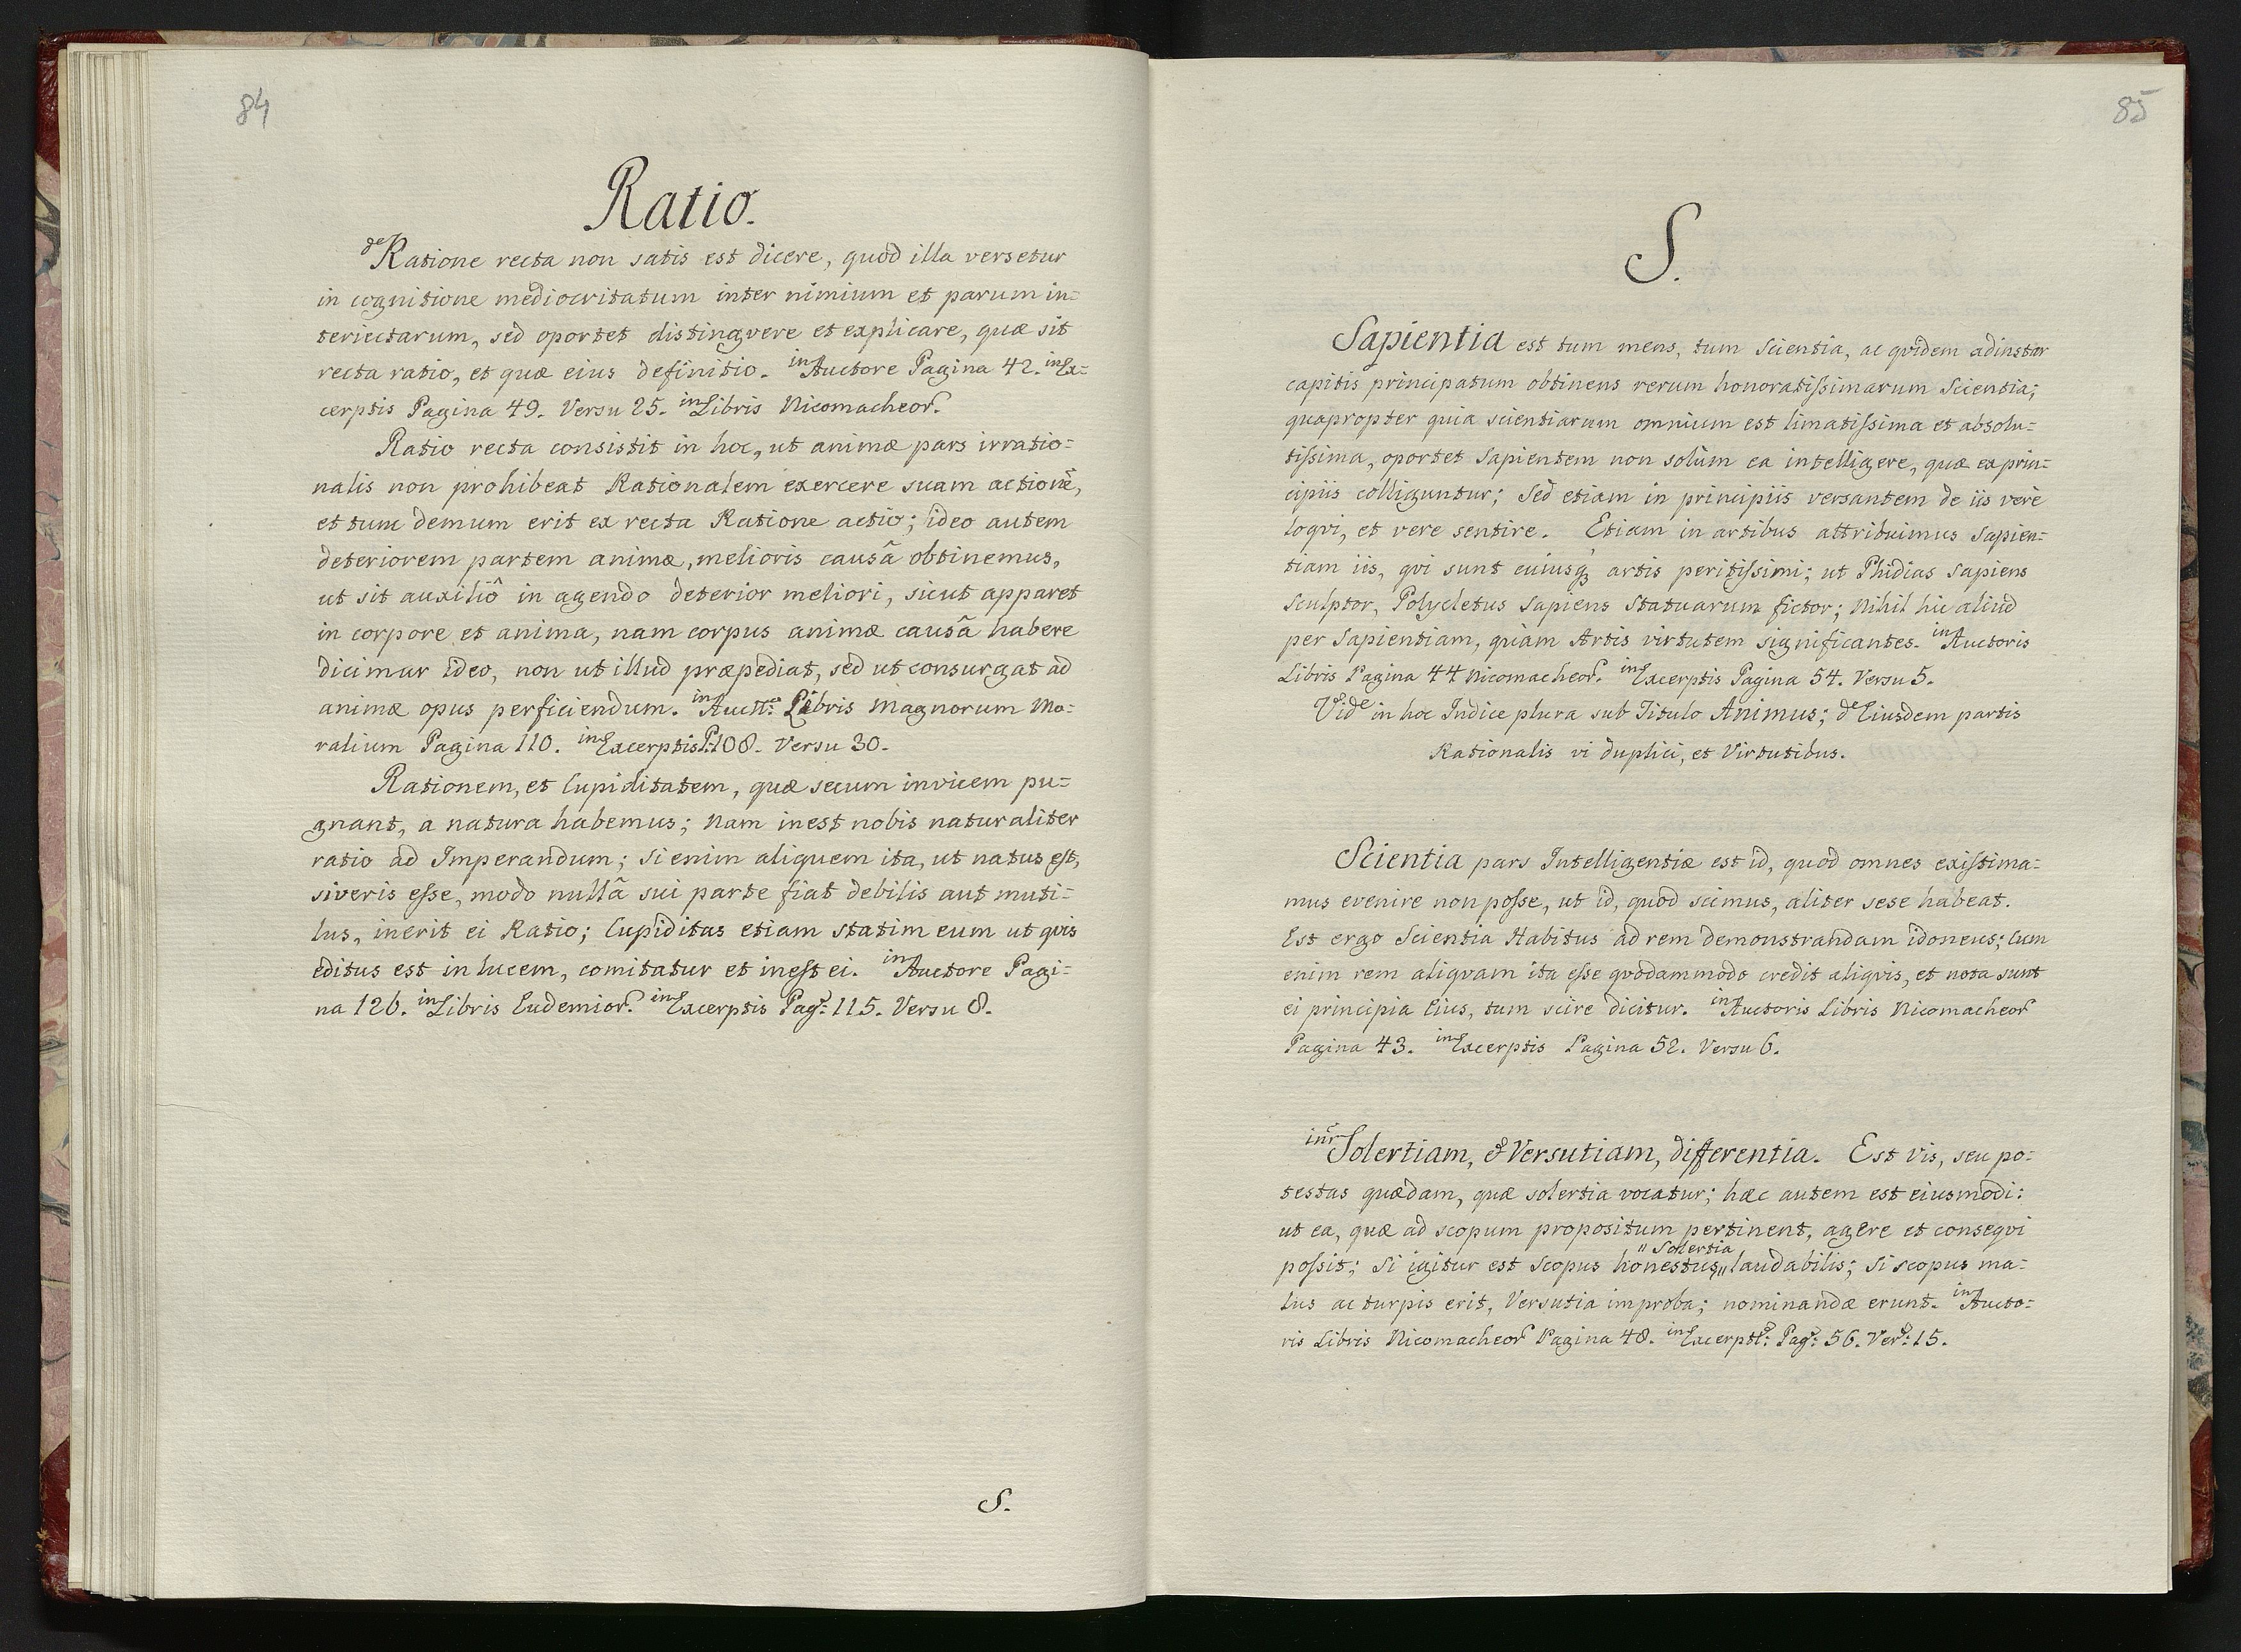 84
Ratio.
de Ratione recta non satis est dicere, quod illa versetur
in cognitione mediocritatum inter nimium et parum in=
teriectarum, sed oportet distingvere et explicare, quæ sit
recta ratio, et quæ eius definitio. in Auctore Pagina 42. in Ex=
cerptis Pagina 49. Versu 25. in Libris Nicomacheor.
Ratio recta consistit in hoc, ut animæ pars irratio=
nalis non prohibeat Rationalem exercere suam actionẽ,
et tum demum erit ex recta Ratione actio; ideo autem
deteriorem partem animæ, melioris causâ obtinemus,
ut sit auxiliô in agendo deterior meliori, sicut apparet
in corpore et anima, nam corpus animæ causâ habere
dicimur ideo, non ut illud præpediat, sed ut consurgat ad
animæ opus perficiendum. in Auct: Libris Magnorum Mo=
ralium Pagina 110. in Excerptis P: 108. Versu 30.
Rationem, et Cupiditatem, quæ secum invicem pu=
gnant, a natura habemus; Nam inest nobis naturaliter
ratio ad Imperandum; si enim aliquem ita, ut natus est,
siveris esse, modo nullâ sui parte fiat debilis aut muti=
lus, inerit ei Ratio; Cupiditas etiam statim eum ut qvis
editus est in lucem, comitatur et inest ei. in Auctore Pagi=
na 126. in Libris Eudemior. in Excerptis Pag: 115. Versu 8.
S.
85
S.
Sapientia est tum mens, tum Scientia, ac qvidem adinstar
capitis principatum obtinens rerum honoratissimarum Scientia;
quapropter quia scientiarum omnium est limatissima et absolu=
tissima, oportet Sapientem non solùm ea intelligere, quæ ex prin=
cipiis colliguntur; Sed etiam in principiis versantem de iis verè
loqvi, et vere sentire. Etiam in artibus attribuimus Sapien=
tiam iis, qvi sunt cuiusq₃ artis peritissimi; ut Phidias Sapiens
Sculptor, Polycletus Sapiens Statuarum fictor; Nihil hic aliud
per Sapientiam, quàm Artis virtutem significantes. in Auctoris
Libris Pagina 44 Nicomacheor. in Excerptis Pagina 54. Versu 5.
Vide in hoc Indice plura sub Titulo Animus; de Eiusdem partis
Rationalis vi duplici, et Virtutibus.
Scientia pars Intelligentiæ est id, quod omnes existima=
mus evenire non posse, ut id, quod scimus, aliter sese habeat.
Est ergo Scientia Habitus ad rem demonstrandam idoneus; Cum
enim rem aliqvam ita esse qvodammodo credit aliqvis, et nota sunt
ei principia Eius, tum scire dicitur. in Auctoris Libris Nicomacheor
Pagina 43. in Excerptis Pagina 52. Versu 6.
inr Solertiam, & Versutiam, differentia. Est vis, seu po=
testas quædam, quæ solertia vocatur; hæc autem est eiusmodi:
ut ea, quæ ad scopum propositum pertinent, agere et conseqvi
" Solertia
possit; Si igitur est Scopus honestus," laudabilis; Si scopus ma=
lus ac turpis erit, Versutia improba; nominandæ erunt. in Aucto=
ris Libris Nicomacheor Pagina 48. in Excerpt: Pag: 56. Ver: 15.